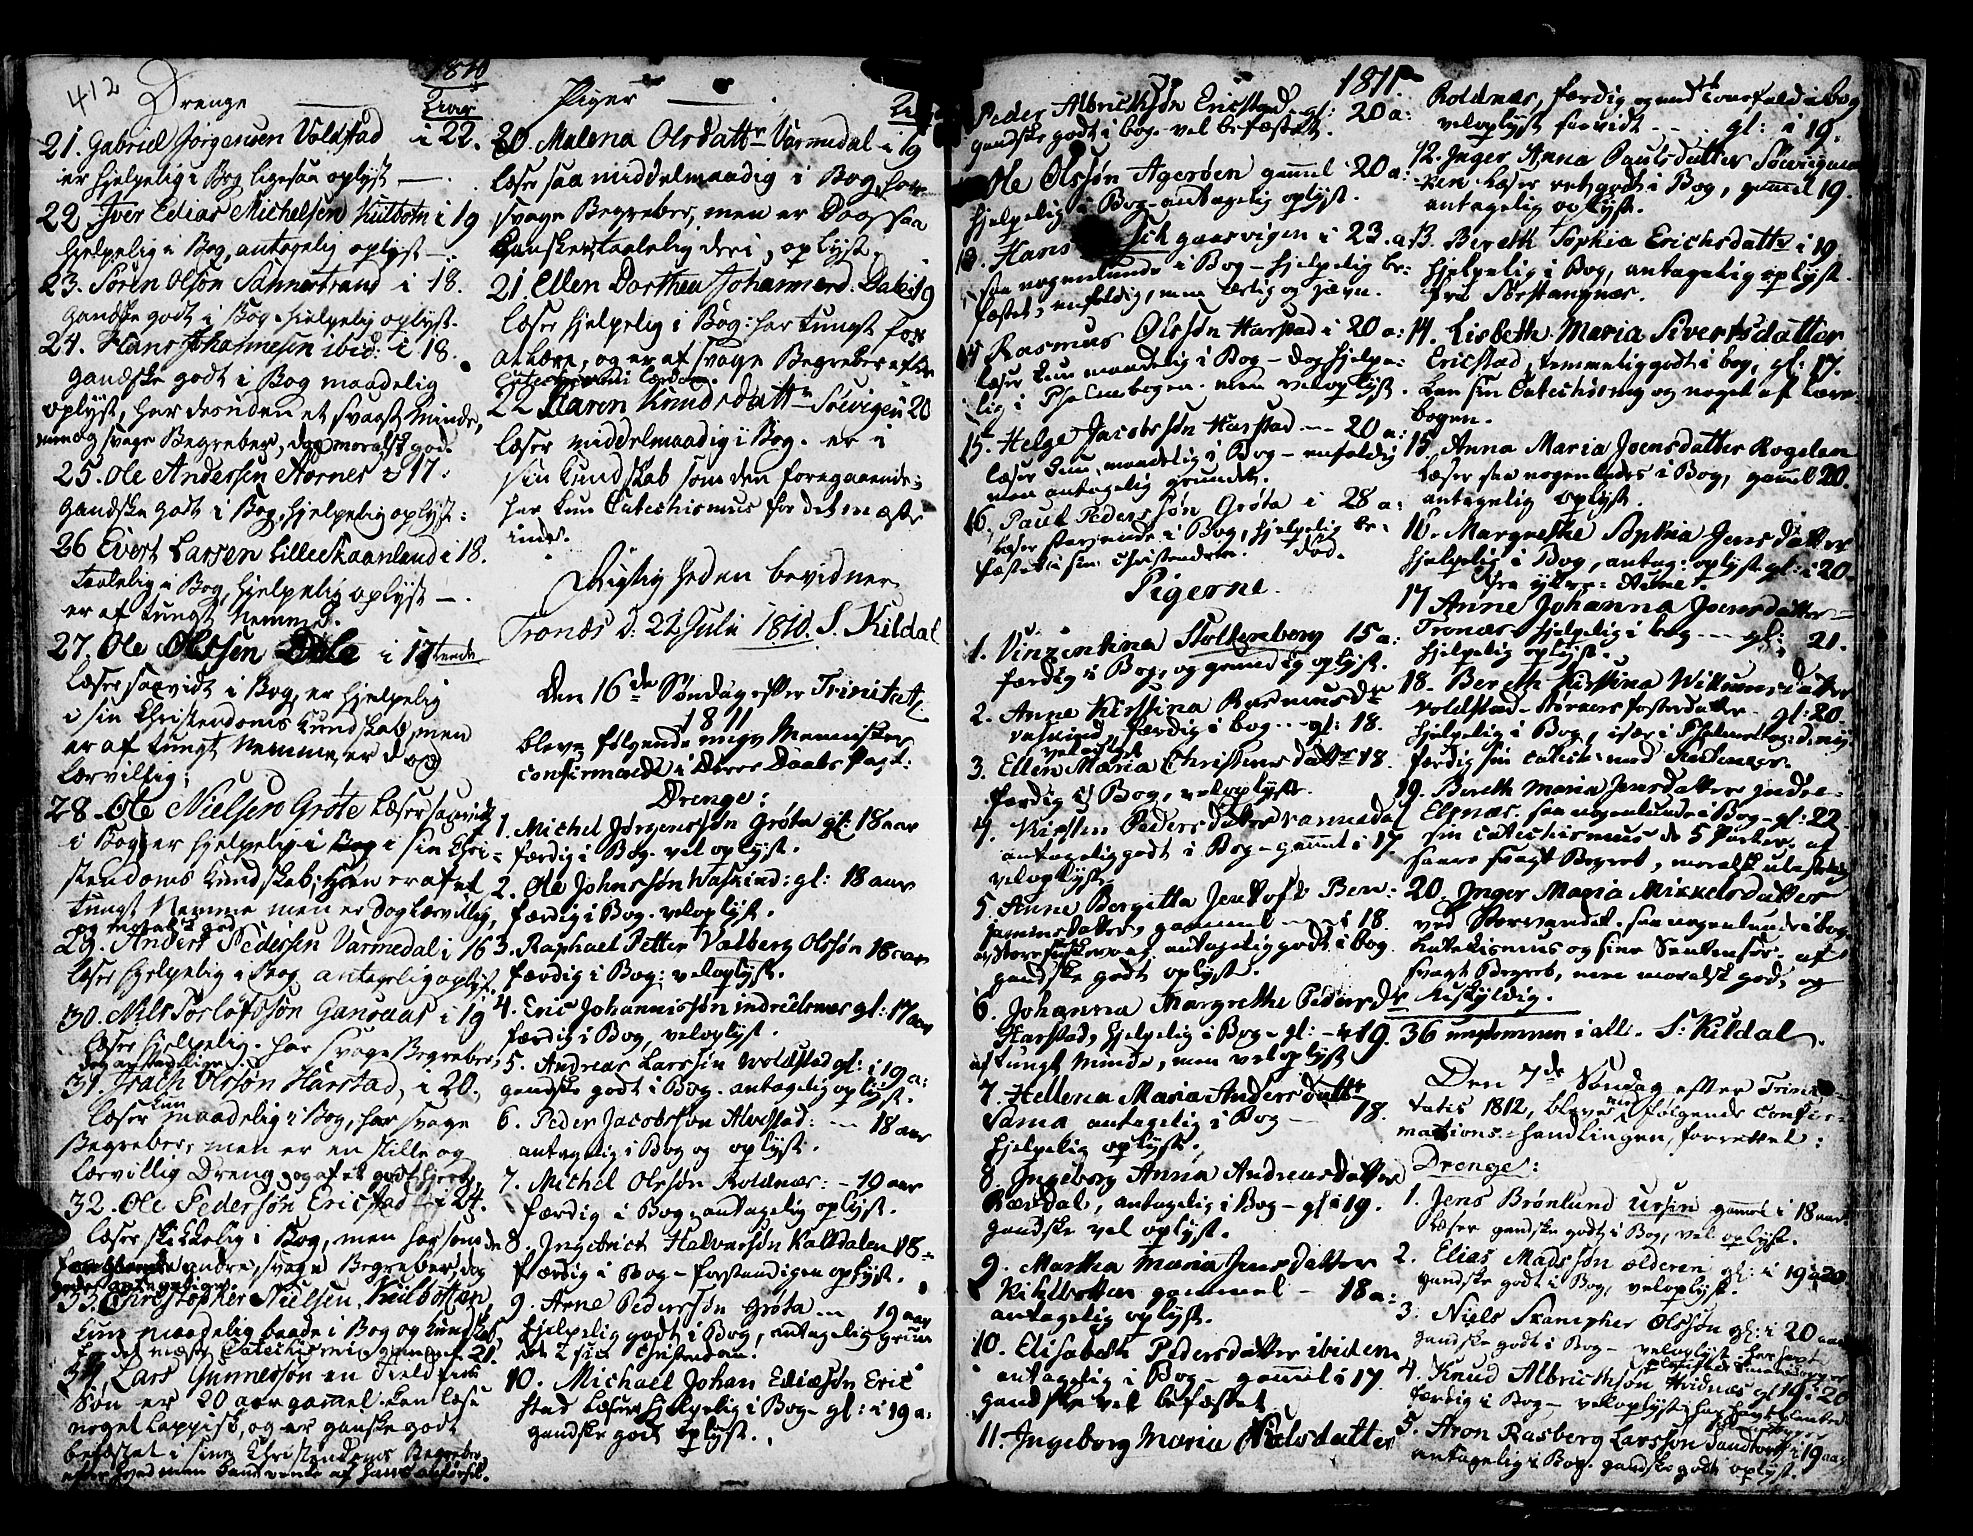 412
1810
Drenge
aar
21. Gabriel Jörgensen Voldstad i 22.
er hjelpelig i Bog ligesaa oplyst
22. Iver Edias Michelsen Kulbotn i 19
hjelpelig i Bog, antagelig oplyst
23. Sören Olsön Sannerstrand i 18.
gandske godt i Bog. hjelpelig oplyst.
24. Hans Johannesen ibid: i 18.
gandske godt i Bog maadelig
oplyst, har desuden et svagt Minde,
og svage Begreber, dog moralsk god.
25. Ole Andersen Stornes i 17.
gandske godt i Bog, hjelpelig oplyst:
26 Evert Larsen Lilleskaanland i 18.
taalelig i Bog, hjelpelig oplyst
er af tungt Nemme.
27. Ole Olssen Dale i 17tende
læser saavidt i Bog, er hjelpelig
i sin Christendoms Kundskab, men
er af tungt Nemme, er dog
lærvillig;
28. Ole Nielsen Gröte læser saavidt
i Bog, er hjelpelig i sin Chri-
stendoms Kundskab; er af et
tungt Nemme men er dog lærvillig,
og moralsk god
29. Anders Pedersen Varmedal i 16
læser hjelpelig i Bog antagelig oplyst.
30. Nils Torlöfssön Gansaas i 19
læser hjelpelig. har svage Begreber,
31. Isach Olssön Harstad, i 20.
læser kun maadelig i Bog, har svage
Begreber, men er en stille og
lærvillig Dreng, og af et godt Hjerte.
32. Ole Pedersön Ericstad i 24.
læser skikkelig i Bog, men har som de
andre, svage Begreber, dog
33. Christopher Nielsen, Kulbotten,
kun maadelig baade i Bog og Kundskab
for det meste Catechismi gammel 21.
34 Lars Gunnersön en Fieldfin
Sön er 20 aar gammel. kan læse
noget Lappisk, og er ganske godt
befæstet i sine Christendoms Begreber,
Piger
20. Malena Olsdattr Varmedal i 19
læser saa middelmaadig i Bog, har
svage Begreber, men er dog saa
ganske taalelig deri, oplyst.
21 Ellen Dorthea Johannesd. Dale i 19
læser hjelpelig i Bog: har tungt for
at lære, og er af svage Begreber efter
Catechismi Lærdom.
22 Karen Knudsdattr Sörvigen i 20
læser middelmaadig i Bog. er i
sin Kundskab som den foregaaende;
har kun Catechismus for det meste
inde.
Rigtigheden bevidner
Tronæs d: 22 Julii 1810. S. Kildal
Den 16de Söndag efter Trinitatis
1811
bleve fölgende unge Mennisker
confirmerede i deres Daabs Pagt:
Drenge:
1. Michel Jörgenssön Gröta gl: 18 aar
færdig i Bog. vel oplyst.
2. Ole Johnssön Waskind: gl: 18 aar
færdig i Bog. vel oplyst.
3. Raphael Petter Valberg Olssön 18 aar
færdig i Bog: vel oplyst.
4. Eric Johannissön indreelsnæs gl: 17 aar
færdig i Bog, vel oplyst.
5. Andreas Larssön Woldstad gl: i 19 a:
gandske godt i Bog. antagelig oplyst.
6. Peder Jacobssön Alvestad: 18 aar
antagelig i Bog og oplyst.
7. Michel Olssön Roldnæs: 19 aar
færdig i Bog, antagelig oplyst.
8. Ingebrict Halvorssön Kaltdalen 18
færdig i Bog - forstandigen oplyst.
9. Arne Pederssön Gröta 19 aar
hjelpelig godt i Bog, antagelig grun-
det i sin Christendom.
10. Michael Johan Ediæsön Eric-
stad læser hjelpelig i Bog - gl: i 19 a:
gandske godt oplyst.
1811
Peder Albrichsön Ericstad gl: 20 a:
gandske godt i bog. vel befæstet.
Ole Olssön Agersen gammel 20 a:
hjelpelig i Bog - antagelig oplyst.
13. Hans gaarvigen i 23. a
saa nogenlunde i Bog - hjelpelig be-
fæstet, enfoldig, men ærlig og jævn.
14 Rasmus Olssön Harstad i 20 a:
læser kun maadelig i Bog - dog hjelpe-
lig i Psalmebogen. men vel oplyst
15. Helge Jacobssön Harstad 20 a:
læser kun maadelig i Bog - enfoldig
men antagelig grundet.
16. Paul Pederssön Gröta i 28 a:
læser stavende i Bog, hjelpelig be-
fæstet i sin Christendom.
Pigerne.
1. Vinzentina Stoltenberg 15 a:
færdig i Bog, og grundig oplyst.
2. Anne Kirstina Rasmusdr
vaskind, færdig i bog gl: 18.
vel oplyst
3. Ellen Maria Christensdattr 18.
færdig i Bog, vel oplyst.
4. Kirsten Pedersdatter vamedal
antagelig godt i Bog - gammel i 17
vel oplyst.
5. Anne Bergitta Jentoft Ben-
jaminsdatter, gammel i 18.
antagelig godt i bog
gandske godt oplyst.
6. Johanna Margrethe Pedersdr
Harstad, hjelpelig i Bog - gl: 19.
af tungt Minde, men vel oplyst
7. Hellena Maria Andersdattr
Sama antagelig i Bog 18.
hjelpelig oplyst.
8. Ingeborg Anna Andreasdatter
Bærsdal, antagelig i Bog - gl 19.
gandske vel oplyst.
9. Martha Maria Jensdatter
Kihlbotten gammel - 18 a:
antagelig oplyst.
10. Elisabeth Pedersdatter ibidem
antagelig i Bog - gammel i 17.
gandske vel befæstet
11. Ingeborg Maria Nielsdatter
Roldnæs, færdig
vel oplyst saavidt gl: i 19.
12. Inger Anna Paulsdatter Sörvigmar-
ken læser ret godt i Bog, gammel 19.
antagelig oplyst.
13. Bereth Sophia Erichsdattr i 19
hjelpelig i Bog, antagelig oplyst.
fra Störstangnæs.
14. Lisbeth Maria Sivertsdatter
Ericstad, temmelig godt i bog, gl: 17.
kan sin Catechismus og noget af Lære-
bogen.
15. Anna Maria Joensdatter Rogelen
læser saa nogenledes i Bog, gammel 20.
antagelig oplyst.
16. Margrethe Sophia Jensdatter
hjelpelig i Bog, antag: oplyst. gl: i 20.
17 Anne Johanna Joensdatter
Tronæs hjelpelig i bog gl: 21.
hjelpelig oplyst.
18. Bereth Kirstina Willumsdatter
Voldstad Störners fosterdatter gl: 20.
hjelpelig i Bog, især i Psalmebog:
færdig sin Catech: med
19. Bereth Maria Jensdatter indre-
Elsnæs. saa nogenlunde i Bog - gl: 22
sin Catechismus de 5 Parter. af
saare svagt Begreb, moralsk ulastelig
20. Inger Maria Mikkelsdatter
ved Storvandet. saa nogenlunde i bog
Katekismus og sine Sentenser. af
svagt Begreb, men moralsk god, og
uskyldig.
36 ungdommen i alt. S: Kildal
Den 7de Söndag efter Trini-
tatis 1812, bleve med fölgende confir-
mations-handlingen, forrettet:
Drenge:
1. Jens Brönlund Ursin gammel i 18 aar
læser gandske godt i Bog, vel oplyst.
2. Elias Madssön Elderen gl: i 19 a 20
gandske godt i Bog, vel oplyst.
3. Niels Skampher Olssön gl: i 20 aar
gandske godt i Bog - vel oplyst
4. Knud Albrichsön Hvidnæs gl 19 i 20
færdig i Bog - vel oplyst,
5. Aron Rasberg Larssön Sandtorf i 19 aar
antagelig i Bog. gandske godt oplyst.